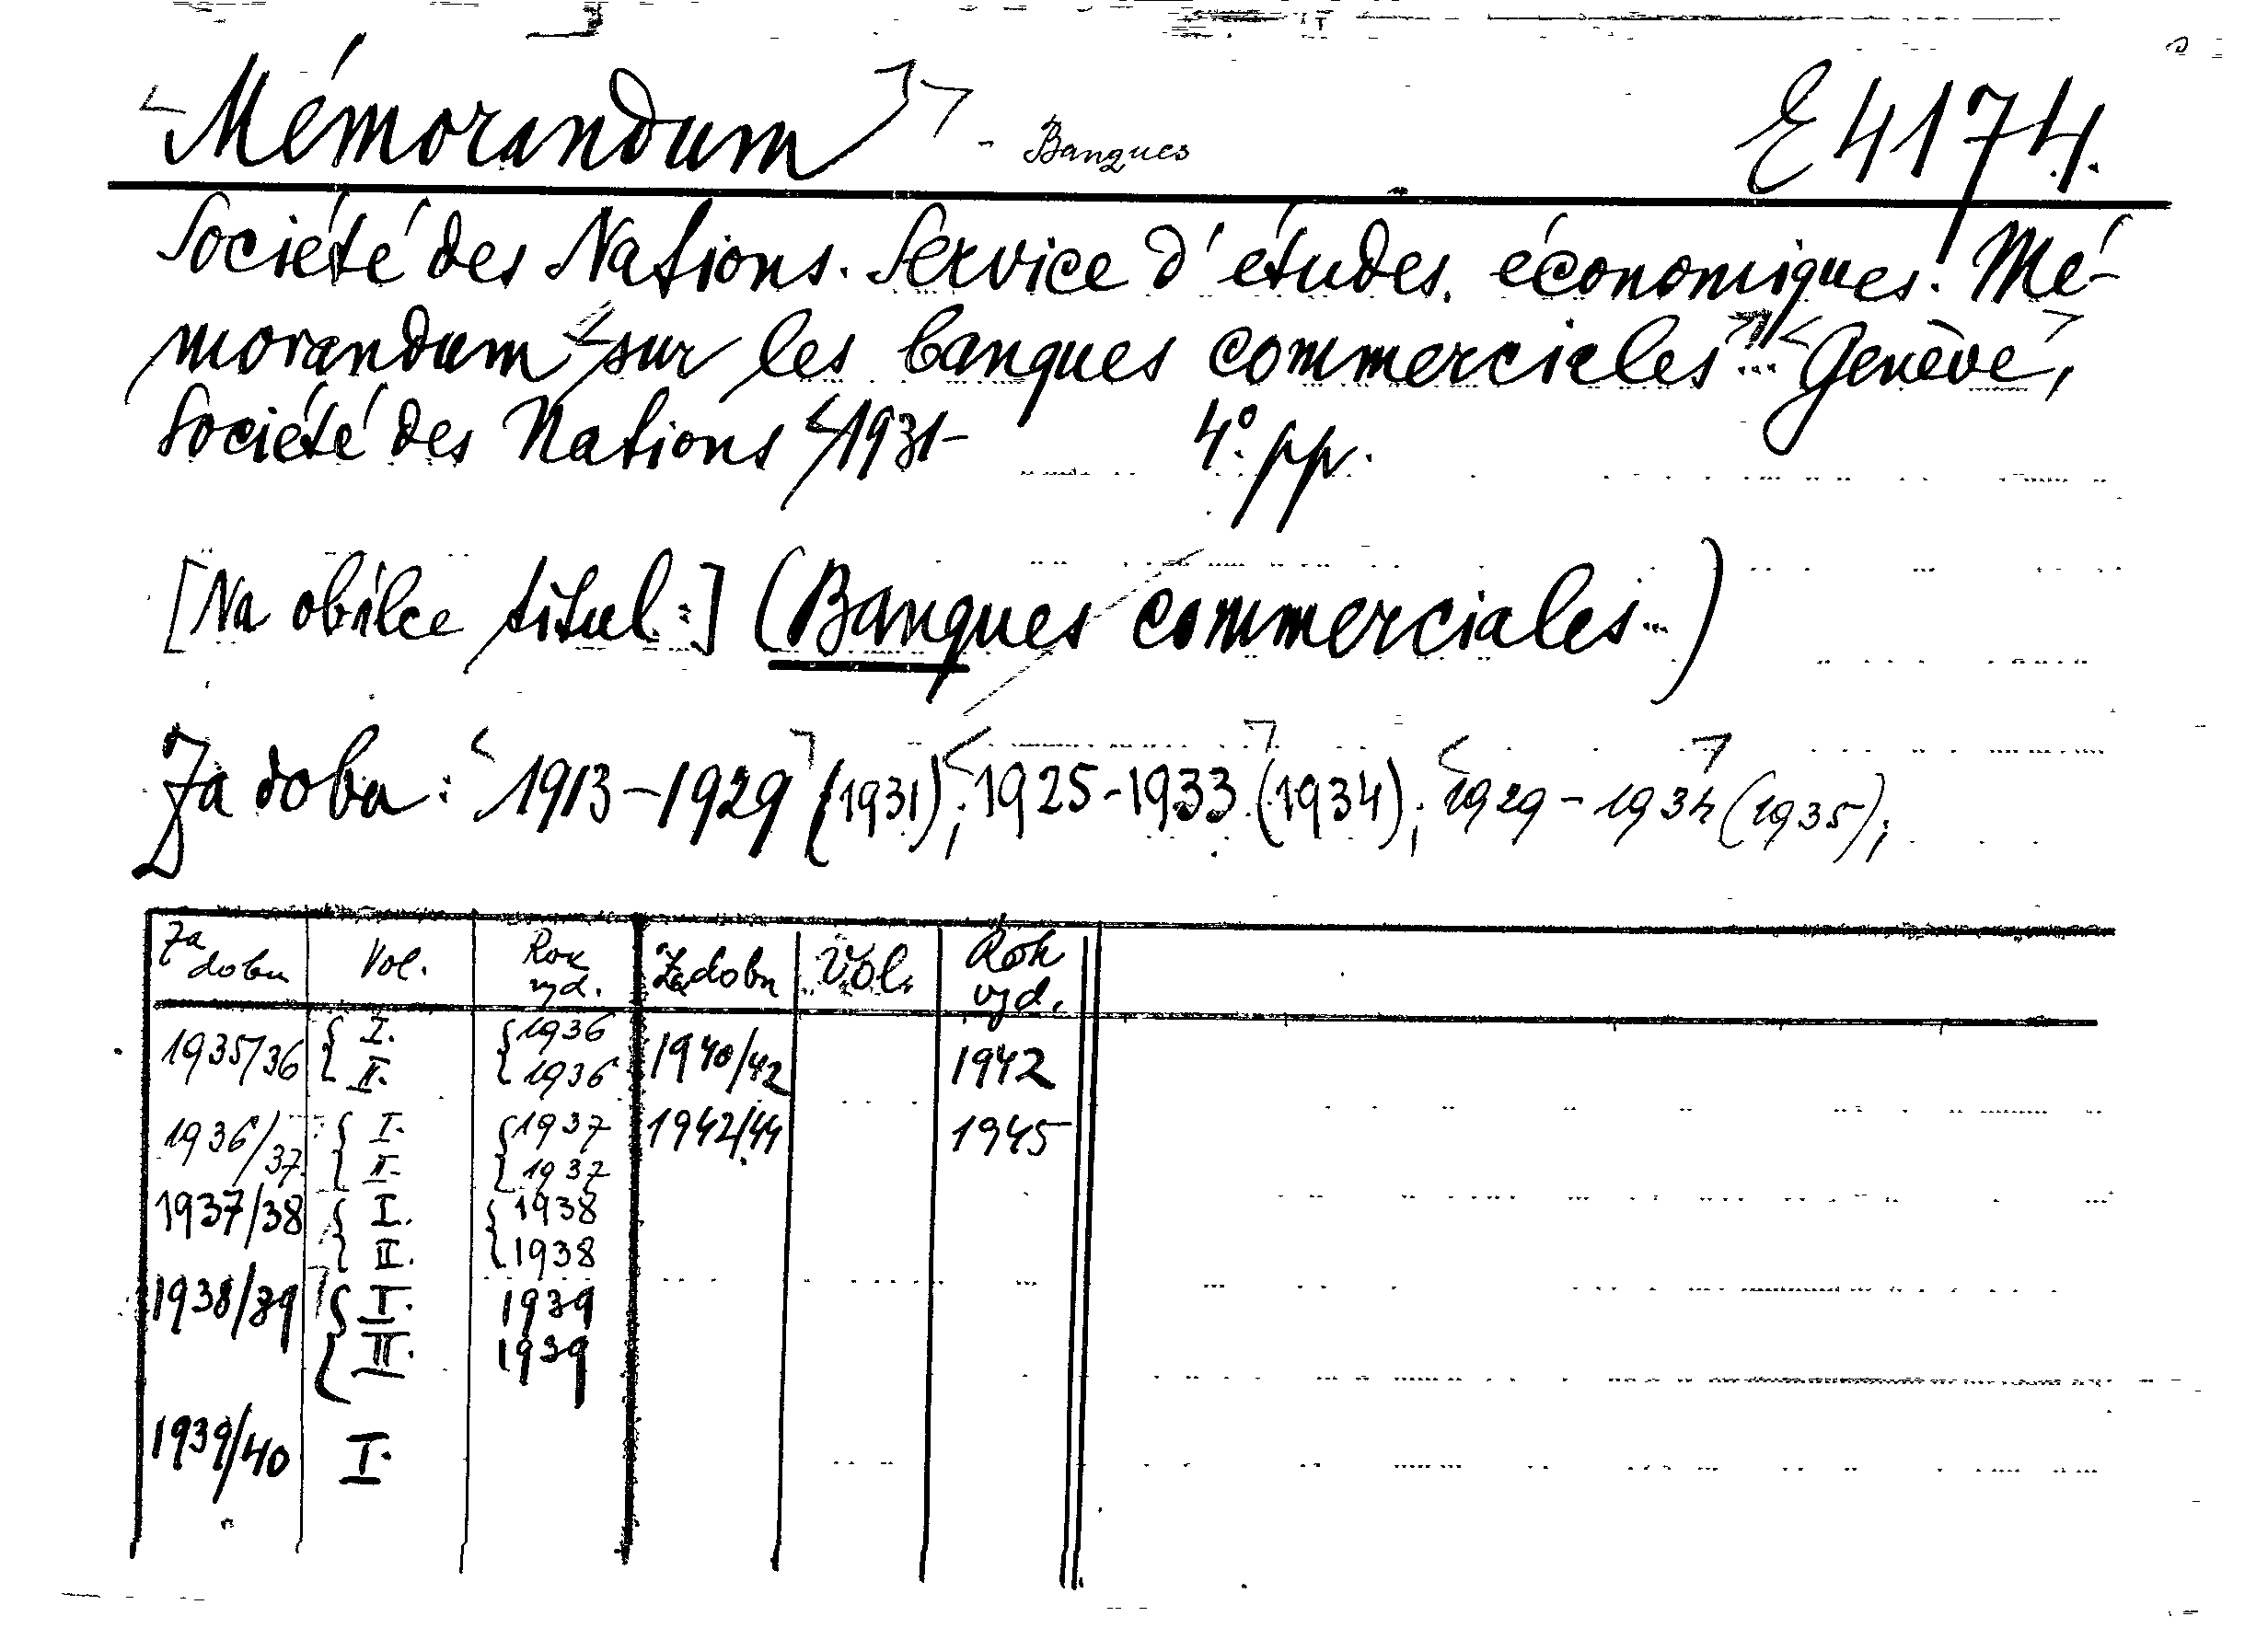 Mémorandum - Banques E 4174.
Société des Nations. Service d'études économiques. Mé-
morandum sur les banques commerciales ... Genève,
Société des Nations 1931- 4° pp.
[Na obálce titul:] (Banques commerciales...)
Za dobu: 1913-1929 (1931); 1925-1933 (1934); 1929-1934 (1935);
Za dobu Vol. Rok vyd. Za dobu Vol. Rok vyd.
1935/36 { I. { 1936 1940/42 1942
II. 1936
1936/37 { I. { 1937 1942/44 1945
II. 1937
1937/38 { I. { 1938
II. 1938
1938/39 { I. 1939
II. 1939
1939/40 I.